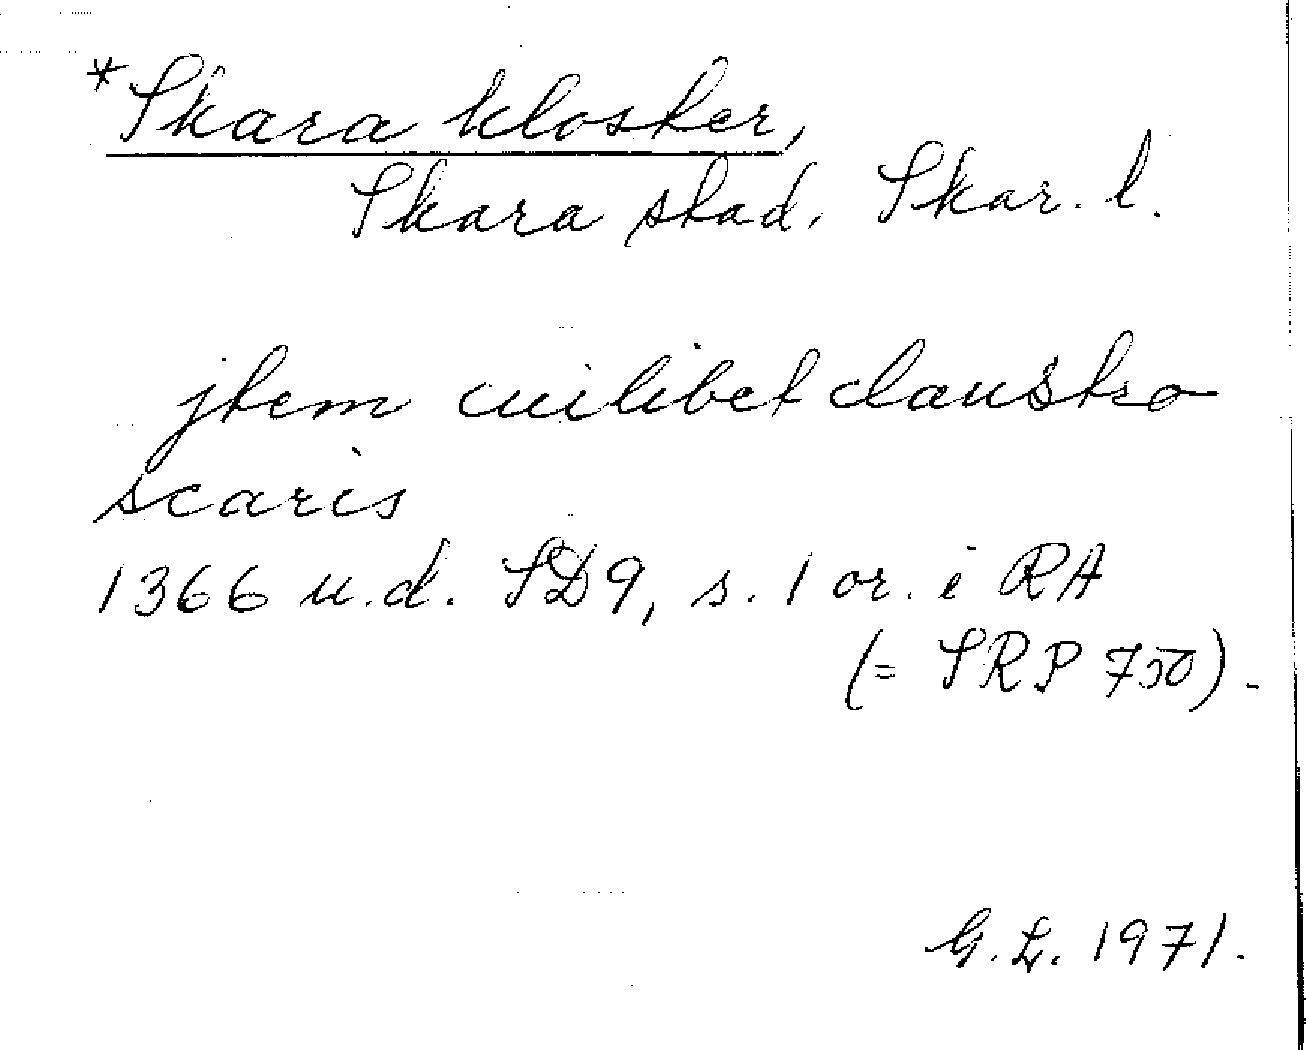 *Skara kloster,
Skara stad, Skar. l.
jtem cuilibet claustro
scaris
1366 u.d. SD9, s. 1 or. i RA
(= SRP 750).
G.L. 1971.